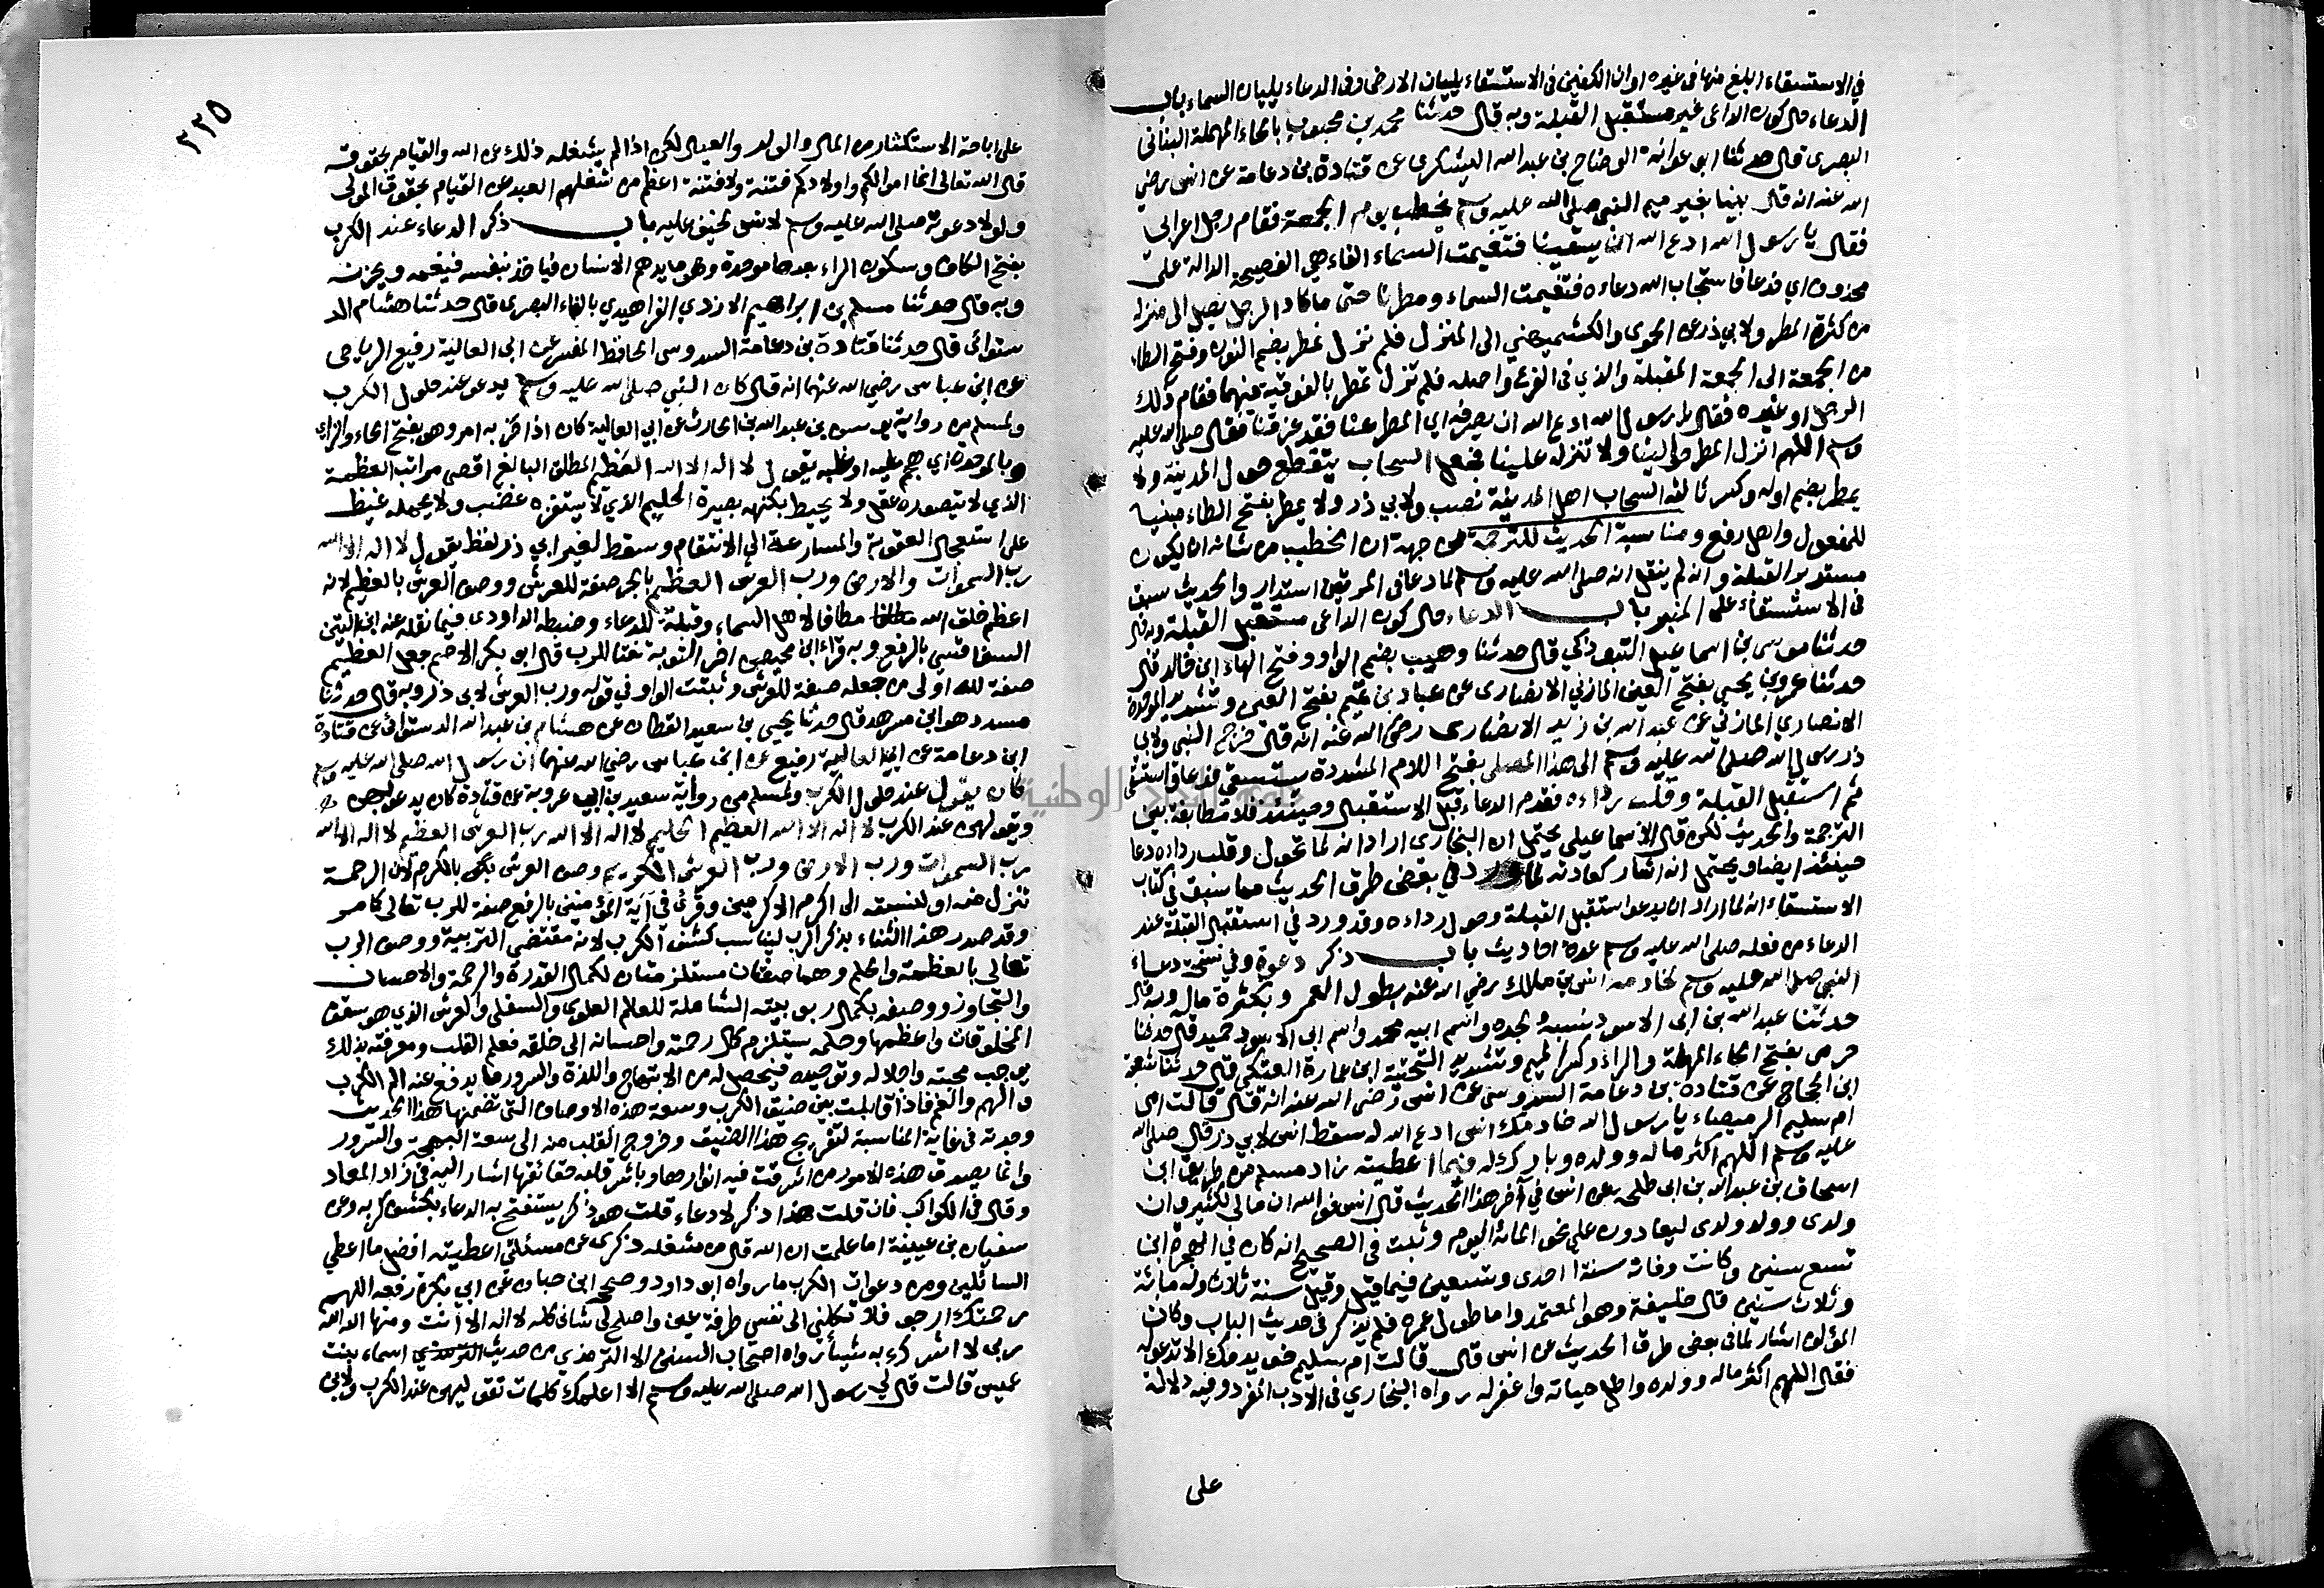 في الاستسقاء ابلغ منها في غيره او ان الكفين في الاستسقاء يليان الارض وفي الدعاء يليان السماء باب
الدعاء حال كون الداعي غير مستقبل القبلة وبه قال حدثنا محمد بن محبوب بالحاء المهملة البناني
البصري قال حدثنا ابو عوانة الوضاح بن عبد الله اليشكري عن قتادة بن دعامة عن انس رضي
الله عنه انه قال بينا بغير ميم النبي صلى الله عليه وسلم يخطب يوم الجمعة فقام رجل اعرابي
فقال يا رسول الله ادع الله ان يسقينا فتغيمت السماء الفاء هي الفصيحة الدالة على
محذوف اي فدعا فاستجاب الله دعاءه فتغيمت السماء ومطرنا حتى ما كاد الرجل يصل الى منزله
من كثرة المطر ولابي ذر عن الحموي والكشميهني الى المنزل فلم نزل نمطر بضم النون وفتح الطاء
من الجمعة الى الجمعة المقبلة والذي في الفرع واصله فلم تزل تمطر بالفوقية فيهما فقام ذلك
الرجل او غيره فقال يا رسول الله ادع الله ان يصرفه اي المطر عنا فقد غرقنا فقال صلى الله عليه
وسلم اللهم انزل المطر حوالينا ولا تنزله علينا فجعل السحاب يتقطع حول المدينة ولا
يمطر بضم اوله وكسر ثالثه السحاب اهل المدينة نصب ولابي ذر ولا يمطر بفتح الطاء مبنيا
للمفعول واهل رفع ومناسبة الحديث للترجمة من جهة ان الخطيب من شانه ان يكون
مستدبر القبلة وانه لم ينقل انه صلى الله عليه وسلم لما دعا في المرتين استدار والحديث سبق
في الاستسقاء على المنبر باب الدعاء حال كون الداعي مستقبل القبلة وبه قال
حدثنا موسى بن اسماعيل التبوذكي قال حدثنا وهيب بضم الواو وفتح الهاء ابن خالد قال
حدثنا عمرو بن يحيى بفتح العين المازني الانصاري عن عباد بن تميم بفتح العين وتشديد الموحدة
الانصاري المازني عن عبد الله بن زيد الانصاري رضي الله عنه انه قال خرج النبي ولابي
ذر رسول الله صلى الله عليه وسلم الى هذا المصلى بفتح اللام المشددة يستسقي فدعا واستسقى
ثم استقبل القبلة وقلب رداءه فقدم الدعاء قبل الاستقبال وحينئذ فلا مطابقة بين
الترجمة والحديث لكن قال الاسماعيلي يحتمل ان البخاري اراد انه لما تحول وقلب رداءه دعا
حينئذ ايضا ويحتمل انه اشار كعادته لما ورد في بعض طرق الحديث مما سبق في كتاب
الاستسقاء انه لما اراد ان يدعو استقبل القبلة وحول رداءه وقد ورد في استقبال القبلة عند
الدعاء من فعله صلى الله عليه وسلم عدة احاديث باب ذكر دعوة وفي نسخة دعاء
النبي صلى الله عليه وسلم لخادمه انس بن مالك رضي الله عنه بطول العمر وبكثرة ماله وبه قال
حدثنا عبد الله بن ابي الاسود نسبه لجده واسم ابيه محمد واسم ابي الاسود حميد قال حدثنا
حرمي بفتح الحاء المهملة والراء وكسر الميم وتشديد التحتية ابن عمارة العتكي قال حدثنا شعبة
ابن الحجاج عن قتادة بن دعامة السدوسي عن انس رضي الله عنه انه قال قالت امي
ام سليم الرميصاء يا رسول الله خادمك انس ادع الله له سقط انس لابي ذر قال صلى الله
عليه وسلم اللهم اكثر ماله وولده وبارك له فيما اعطيته زاد مسلم من طريق ابن
اسحاق بن عبد الله بن ابي طلحة عن انس في آخر هذا الحديث قال انس فوالله ان مالي لكثير وان
ولدي وولد ولدي ليعادون على نحو المائة اليوم وثبت في الصحيح انه كان في الهجرة ابن
تسع سنين وكانت وفاته سنة احدى وتسعين فيما قيل وقيل سنة ثلاث وله مائة
وثلاث سنين قال خليفة وهو المعتمد واما طول عمره فلم يذكر في حديث الباب وكان
المؤلف اشار لما في بعض طرق الحديث عن انس قال قالت ام سليم خويدمك الا تدعو له
فقال اللهم اكثر ماله وولده واطل حياته واغفر له رواه البخاري في الادب المفرد وفيه دلالة
على
٢٣٥
على اباحة الاستكثار من المال والولد والعيال لكن اذا لم يشغله ذلك عن الله والقيام بحقوقه
قال الله تعالى انما اموالكم واولادكم فتنة ولا فتنة اعظم من شغلهم العبد عن القيام بحقوق المولى
ولولا دعوته صلى الله عليه وسلم لانس لخيف عليه باب ذكر الدعاء عند الكرب
بفتح الكاف وسكون الراء بعدها موحدة وهو ما يدهم الانسان فياخذ بنفسه فيغمه ويحزنه
وبه قال حدثنا مسلم بن ابراهيم الازدي الفراهيدي بالفاء البصري قال حدثنا هشام الد
ستوائي قال حدثنا قتادة بن دعامة السدوسي الحافظ المفسر عن ابي العالية رفيع الرياحي
عن ابن عباس رضي الله عنهما انه قال كان النبي صلى الله عليه وسلم يدعو عند حلول الكرب
ولمسلم من رواية يوسف بن عبد الله بن الحارث عن ابي العالية كان اذا حزبه امر وهو بفتح الحاء والزاي
وبالموحدة اي هجم عليه او غلبه يقول لا اله الا الله العظيم المطلق البالغ اقصى مراتب العظمة
الذي لا يتصوره عقل ولا يحيط بكنهه بصيرة الحليم الذي لا يستفزه غضب ولا يحمله غيظ
على استعجال العقوبة والمسارعة الى الانتقام وسقط لغير ابي ذر لفظ يقول لا اله الا الله
رب السموات والارض ورب العرش العظيم بالجر صفة للعرش ووصف العرش بالعظيم لانه
اعظم خلق الله مطافا لاهل السماء وقبلة للدعاء وضبطه الداودي فيما نقله عنه ابن التين
السفاقسي بالرفع وبه قرأ ابن محيصن اخر التوبة نعتا للرب قال ابو بكر الاصم جعل العظيم
صفة لله اولى من جعله صفة للعرش وثبتت الواو في قوله ورب العرش لابي ذر وبه قال حدثنا
مسدد هو ابن مسرهد قال حدثنا يحيى بن سعيد القطان عن هشام بن عبد الله الدستوائي عن قتادة
ابن دعامة عن ابي العالية رفيع عن ابن عباس رضي الله عنهما ان رسول الله صلى الله عليه وسلم
كان يقول عند حلول الكرب ولمسلم من رواية سعيد بن ابي عروبة عن قتادة كان يدعو بهن
ويقولهن عند الكرب لا اله الا الله العظيم الحليم لا اله الا الله رب العرش العظيم لا اله الا الله
رب السموات ورب الارض ورب العرش الكريم وصف العرش بالكرم لان الرحمة
تنزل منه او لنسبته الى اكرم الاكرمين وقرئ في آية المؤمنين بالرفع صفة للرب تعالى كما مر
وقد صدر هذا الثناء بذكر الرب ليناسب كشف الكرب لانه مقتضى التربية ووصف الرب
تعالى بالعظمة والحلم وهما صفتان مستلزمتان لكمال القدرة والرحمة والاحسان
والتجاوز ووصفه بكمال ربوبيته الشاملة للعالم العلوي والسفلي والعرش الذي هو سقف
المخلوقات واعظمها وحلمه يستلزم كمال رحمته واحسانه الى خلقه فعلم القلب ومعرفته بذلك
يوجب محبته واجلاله وتوحيده فيحصل له من الابتهاج واللذة والسرور ما يدفع عنه الم الكرب
والهم والغم فاذا قابلت بين ضيق الكرب وسعة هذه الاوصاف التي تضمنها هذا الحديث
وجدته في غاية المناسبة لتفريج هذا الضيق وخروج القلب منه الى سعة البهجة والسرور
وانما يصدق هذه الامور من اشرقت فيه انوارها وباشر قلبه حقائقها اشار اليه في زاد المعاد
وقال في الكواكب فان قلت هذا ذكر لا دعاء قلت هو ذكر يستفتح به الدعاء بكشف كربه وعن
سفيان بن عيينة اما علمت ان الله قال من شغله ذكري عن مسئلتي اعطيته افضل ما اعطي
السائلين ومن دعوات الكرب ما رواه ابو داود وصحح ابن حبان عن ابي بكرة رفعه اللهم
رحمتك ارجو فلا تكلني الى نفسي طرفة عين واصلح لي شاني كله لا اله الا انت ومنها الله الله
ربي لا اشرك به شيئا رواه اصحاب السنن الا الترمذي من حديث اسماء بنت
عميس قالت قال لي رسول الله صلى الله عليه وسلم الا اعلمك كلمات تقوليهن عند الكرب ولابي